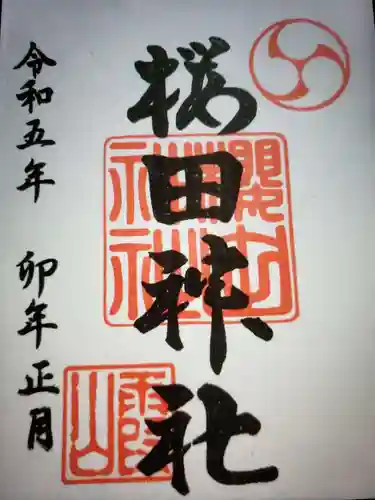 桜田神社
令和五年 卯年正月
櫻田神社
霞山